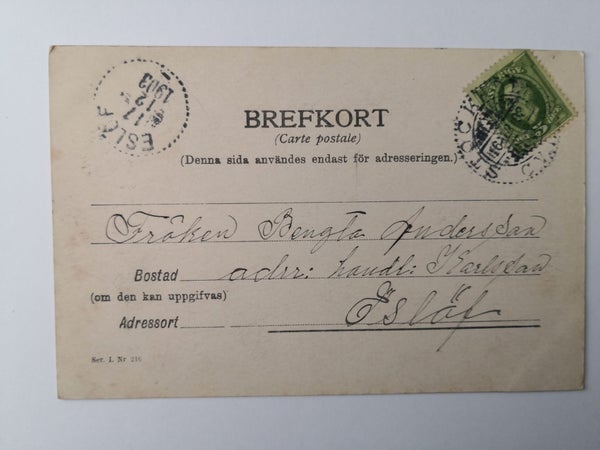 BREFKORT
(Carte postale)
(Denna sida användes endast för adresseringen.)
Fröken Bengta Andersson
Bostad adr: handl: Karlsson
(om den kan uppgifvas)
Adressort Eslöf
Ser. I. Nr 216
ESLÖF
17
12
1903